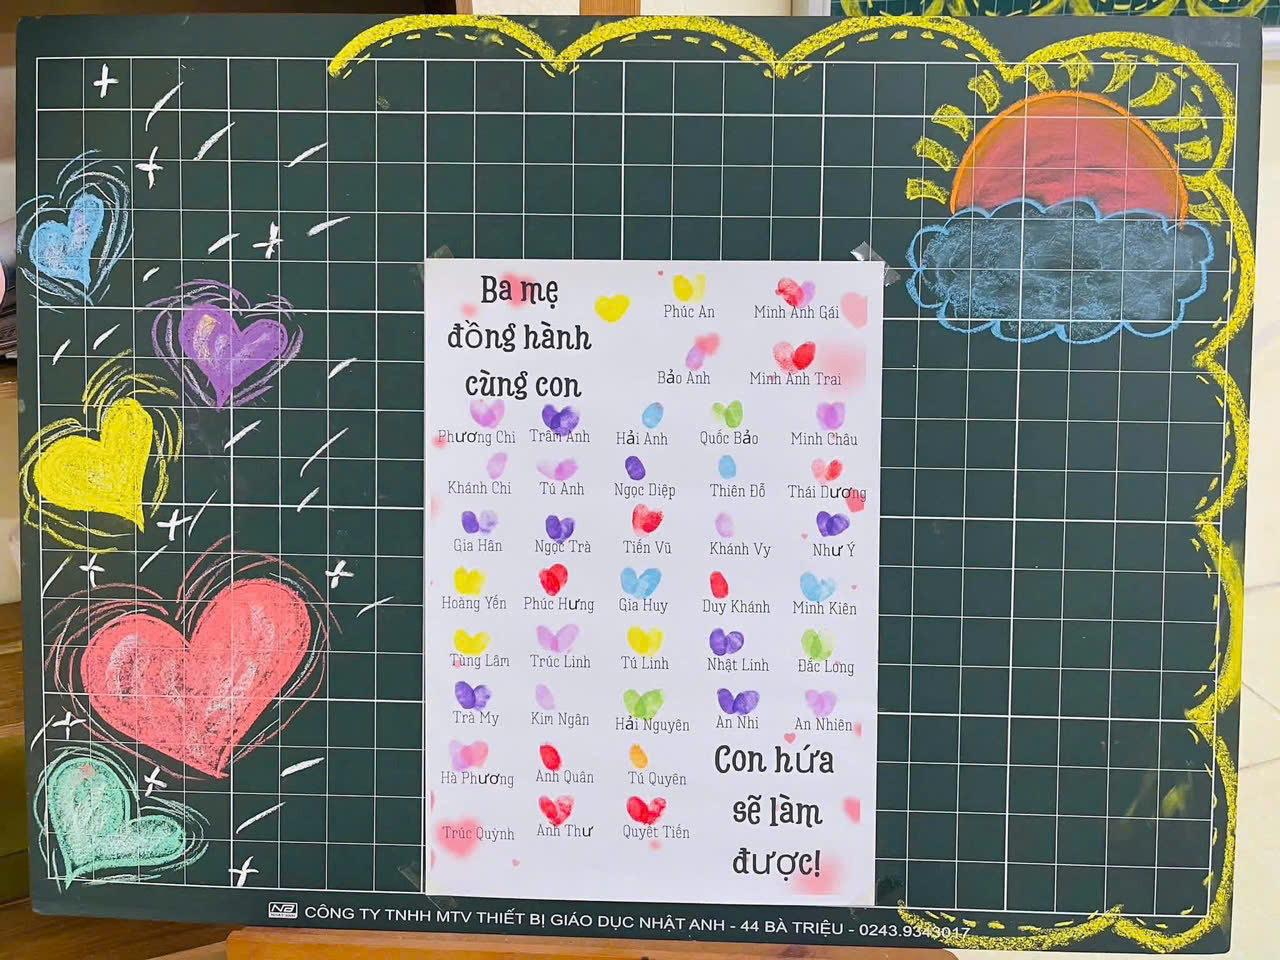 Ba mẹ
đồng hành
cùng con
Phúc An
Minh Anh Gái
Bảo Anh
Minh Anh Trai
Phương Chi
Trâm Anh
Hải Anh
Quốc Bảo
Minh Châu
Khánh Chi
Tú Anh
Ngọc Diệp
Thiên Đỗ
Thái Dương
Gia Hân
Ngọc Trà
Tiến Vũ
Khánh Vy
Như Ý
Hoàng Yến
Phúc Hưng
Gia Huy
Duy Khánh
Minh Kiên
Tùng Lâm
Trúc Linh
Tú Linh
Nhật Linh
Đắc Long
Trà My
Kim Ngân
Hải Nguyên
An Nhi
An Nhiên
Hà Phương
Anh Quân
Tú Quyên
Trúc Quỳnh
Anh Thư
Quyết Tiến
Con hứa
sẽ làm
được!
CÔNG TY TNHH MTV THIẾT BỊ GIÁO DỤC NHẬT ANH - 44 BÀ TRIỆU - 0243.9343017